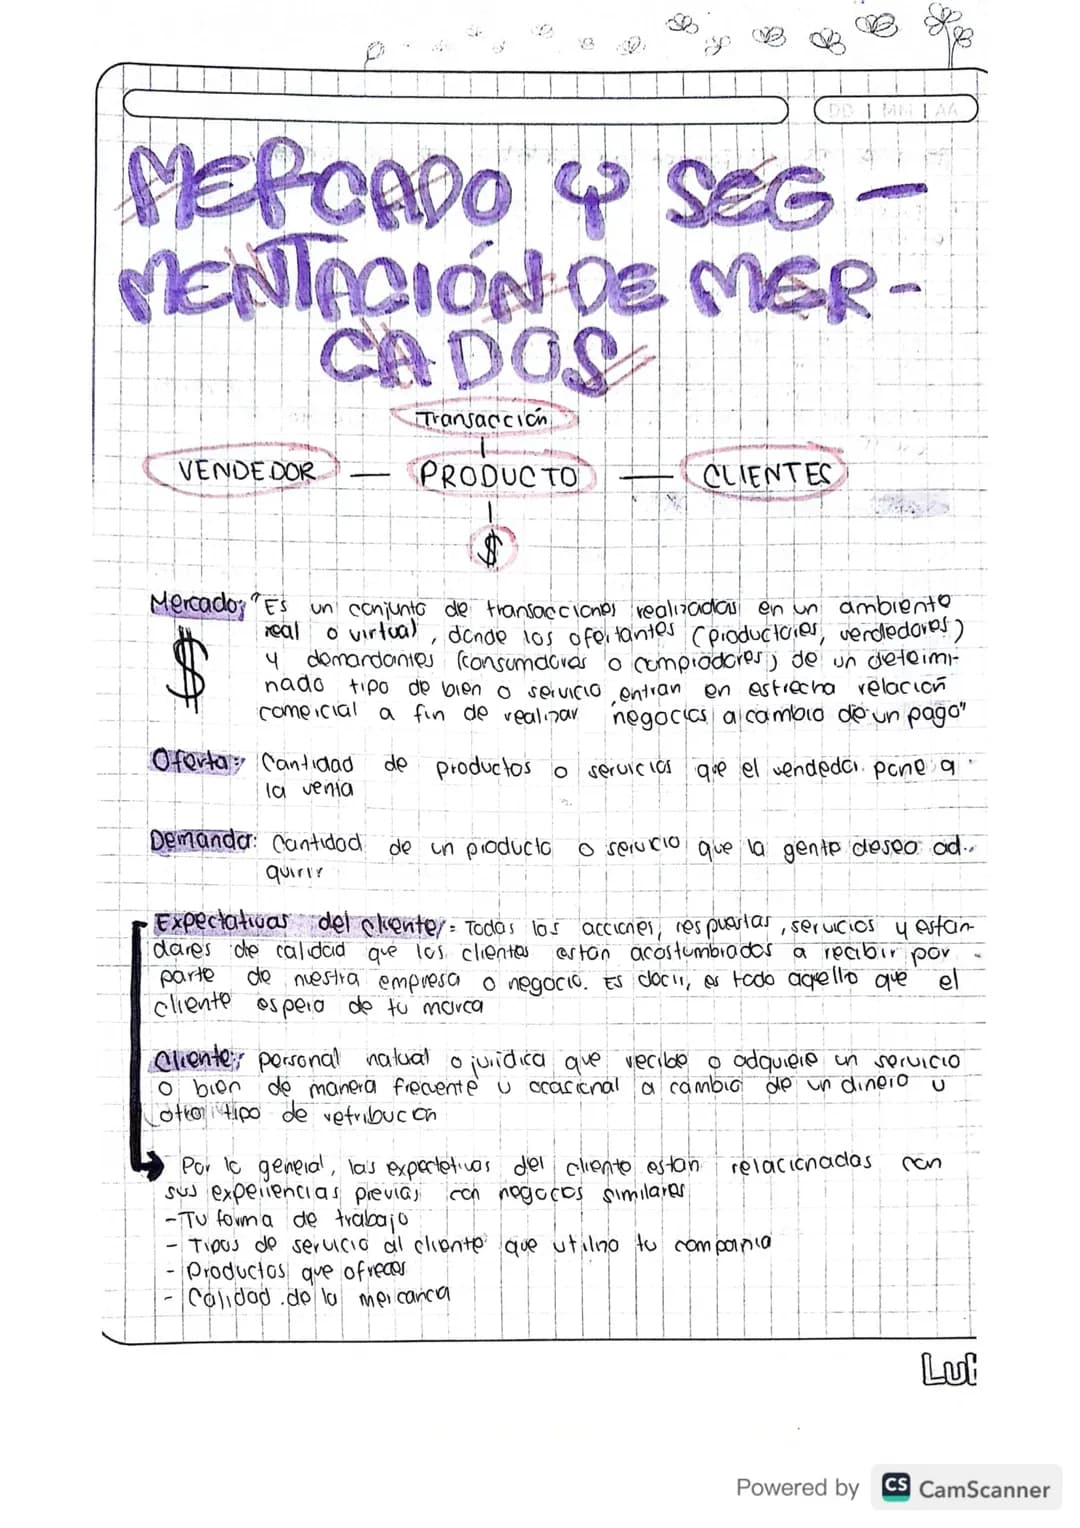 DD | MM | AA
MERCADO Y SEG-
MENTACIÓN DE MER-
CADOS
Transacción
VENDEDOR — PRODUCTO — CLIENTES
$
Mercado: "Es un conjunto de transacciones realizadas en un ambiente
real o virtual, donde los ofertantes (productores, vendedores)
$ y demandantes (consumidores o compradores) de un determi-
nado tipo de bien o servicio, entran en estrecha relación
comercial a fin de realizar negocios a cambio de un pago"
Oferta: Cantidad de productos o servicios que el vendedor pone a
la venta
Demanda: Cantidad de un producto o servicio que la gente desea ad-
quirir
Expectativas del cliente: Todas las acciones, respuestas, servicios y están-
dares de calidad que los clientes están acostumbrados a recibir por
parte de nuestra empresa o negocio. Es decir, es todo aquello que el
cliente espera de tu marca
Cliente: personal natual o juridica que recibe o adquiere un servicio
o bien de manera frecuente u ocasional a cambio de un dinero u
otro tipo de retribución
Por lo general, las expectetivas del cliente estan relacionadas con
sus experiencias previas con negocos similares
-Tu forma de trabajo
- Tipos de servicio al cliente que utilno tu compania
- Productos que ofreces
- Calidad de la mercancia
Powered by CS CamScanner